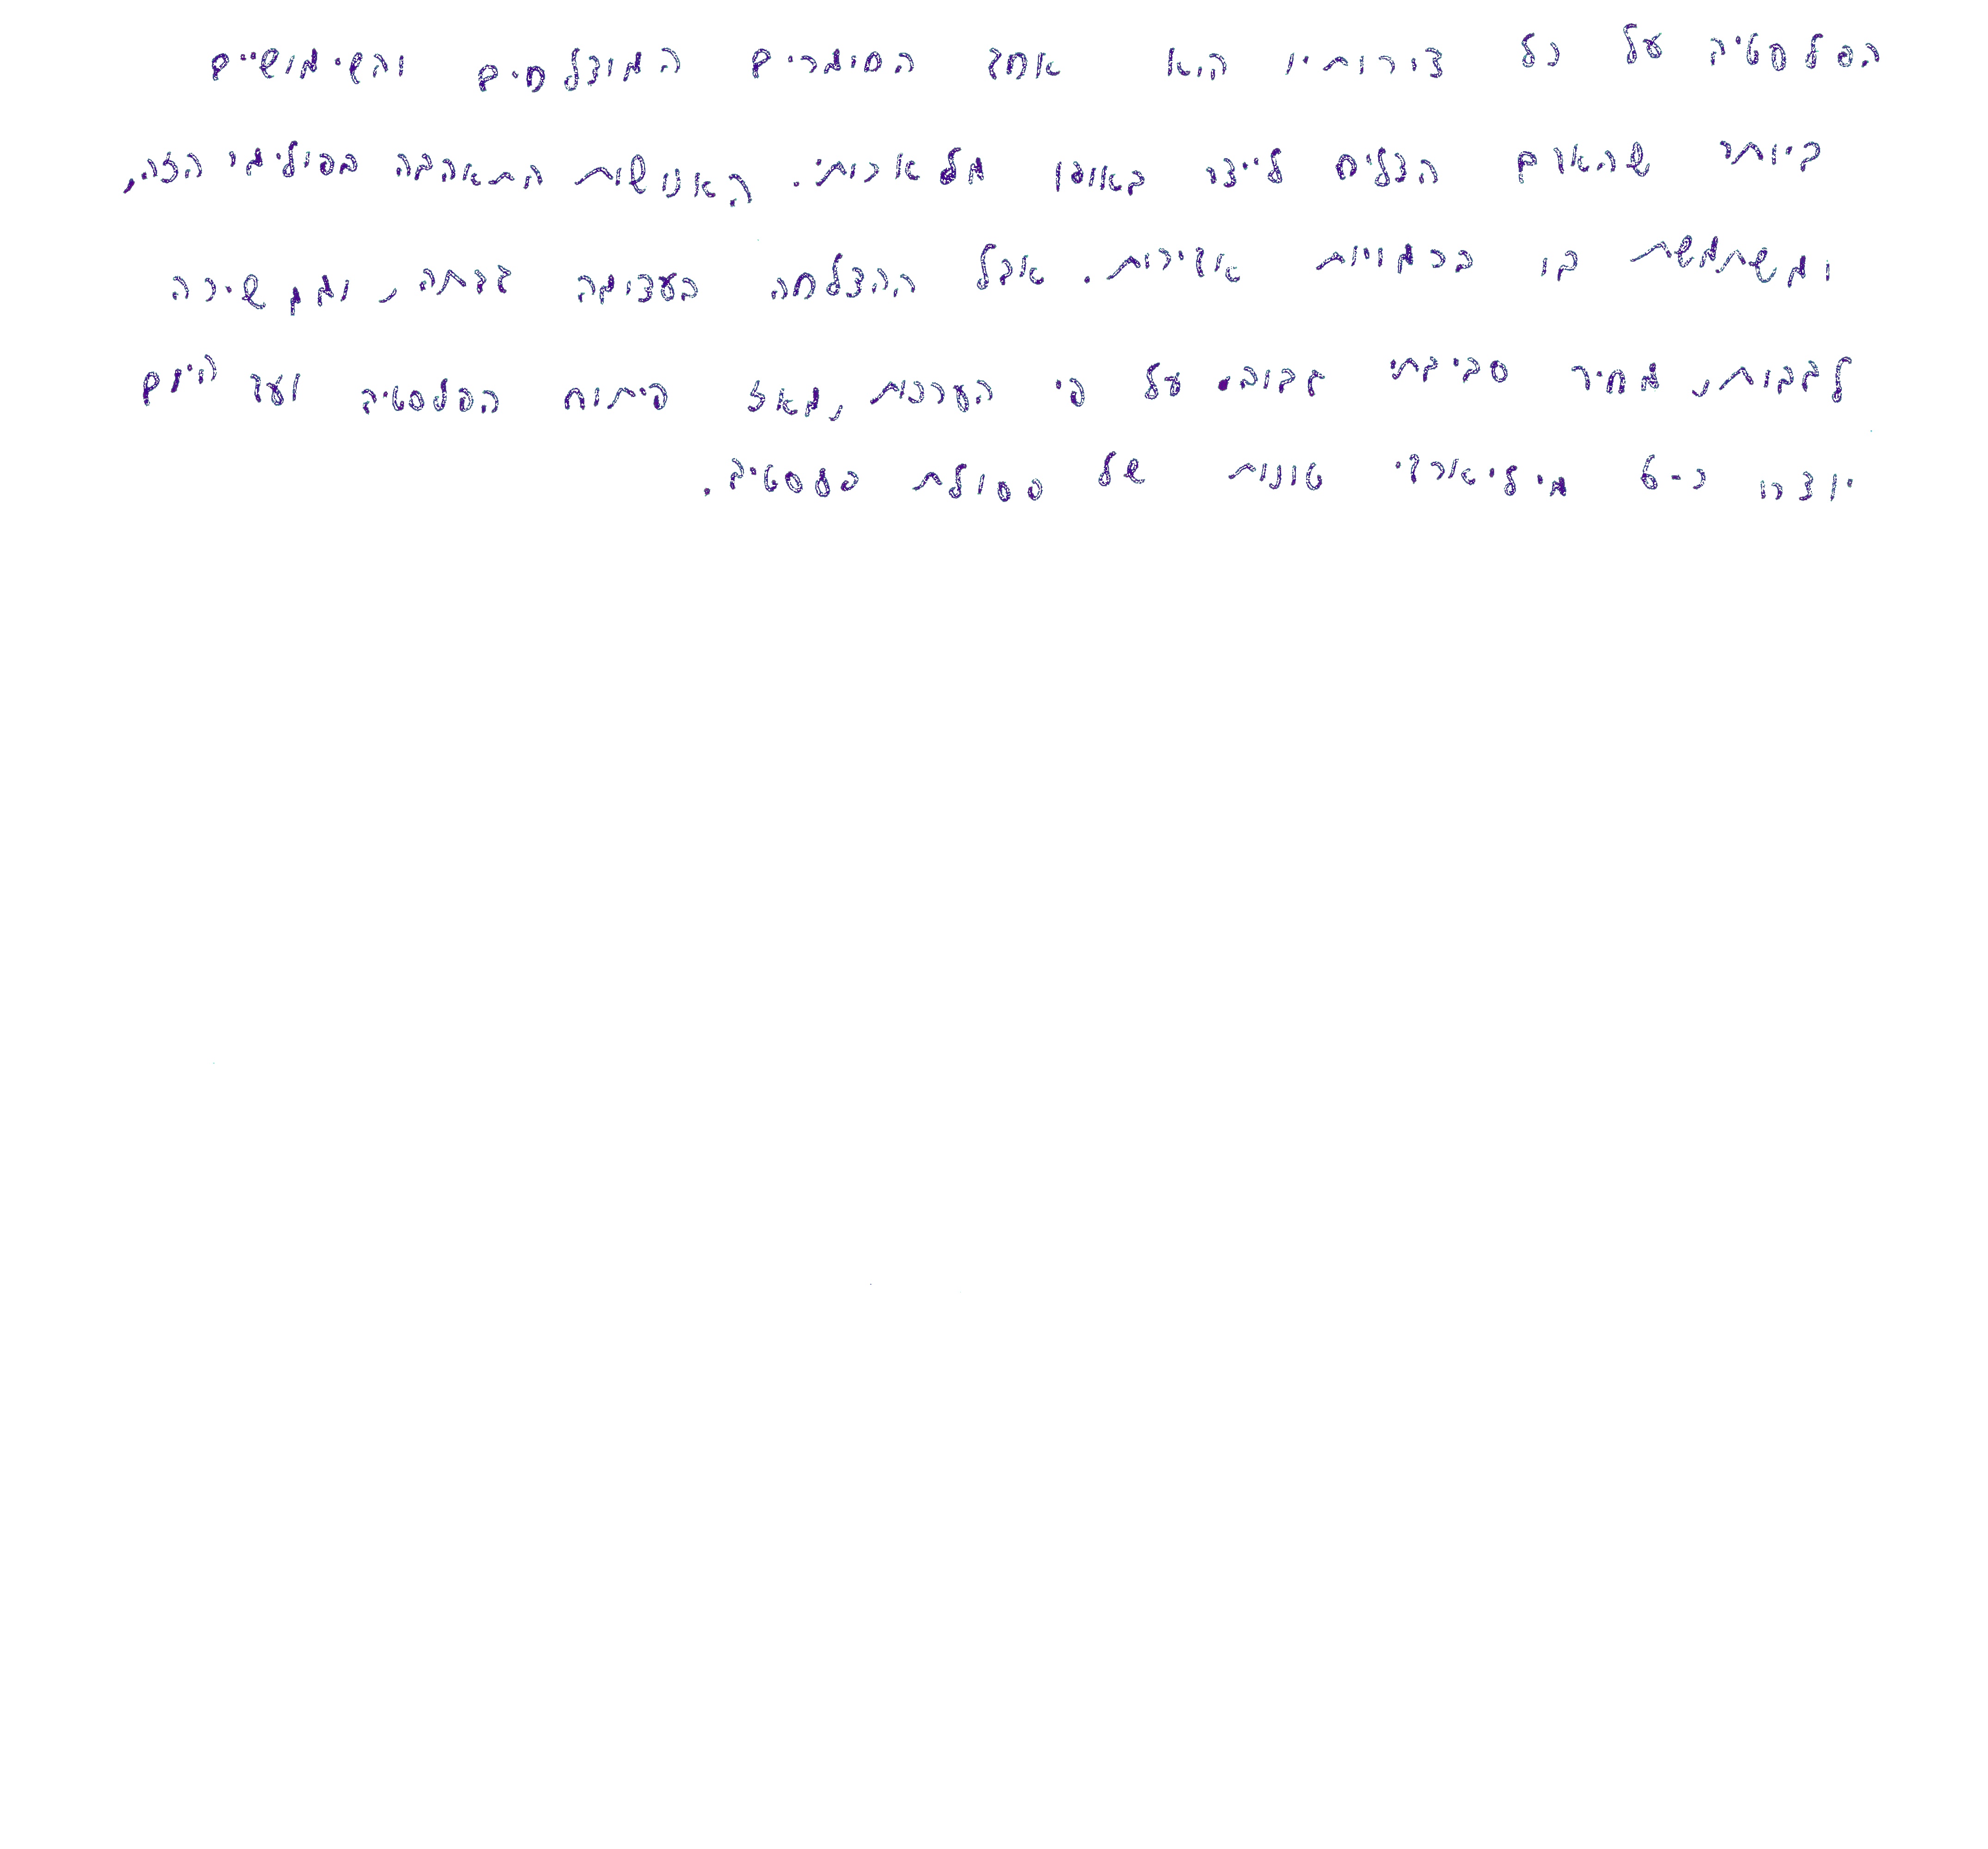 הפלסטיק על כל צורותיו הוא אחד החומרים המוצלחים והשימושיים
ביותר שהאדם הצליח לייצר באופן מלאכותי. האנושות התאהבה בפולימר הזה,
ומשתמשת בו בכמויות אדירות. אבל ההצלחה העצומה גבתה, וממשיכה
לגבות, מחיר סביבתי גבוה. על פי הערכות, מאז פיתוח הפלסטיק ועד היום
יוצרו כ-6 מיליארד טונות של פסולת פלסטיק.